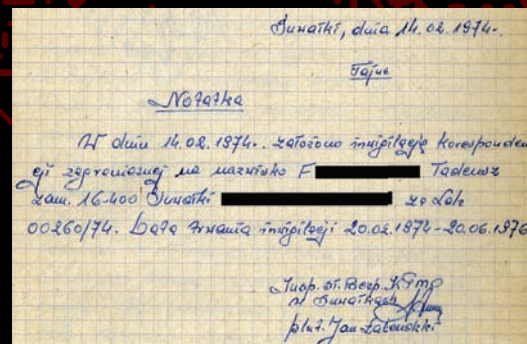 Suwałki, dnia 14.02.1974r.
Tajne
Notatka
W dniu 14.02.1974r. założono inwigilację koresponden
cji zagranicznej na nazwisko F Tadeusz
zam. 16-400 Suwałki za Ldz
00260/74. Data trwania inwigilacji 20.02.1974-20.06.1976
Insp. Bezp. KPMO
w Suwałkach
plut. Jan